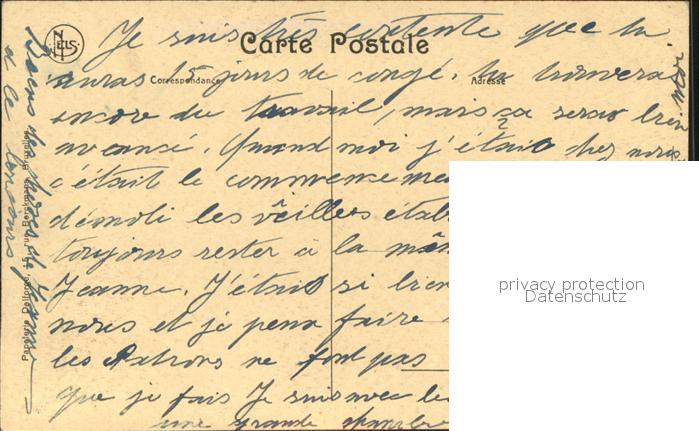 NELS
Carte Postale
Correspondance
Adresse
Je suis très contente que tu
auras 15 jours de congé. tu trouveras
encore du travail, mais ça sera bien
avancé. Quand moi j'étais chez nous
c'était le commenceme
démoli les vieilles étab
toujours rester à la m
Jeanne. J'étais si bien
nous et je peux faire
les Patrons ne font pas
que je fais Je suis avec le
une grande chambre
Papeterie Dellorge, 15, rue Berckmans, Bruxelles
à le toujours
privacy protection
Datenschutz